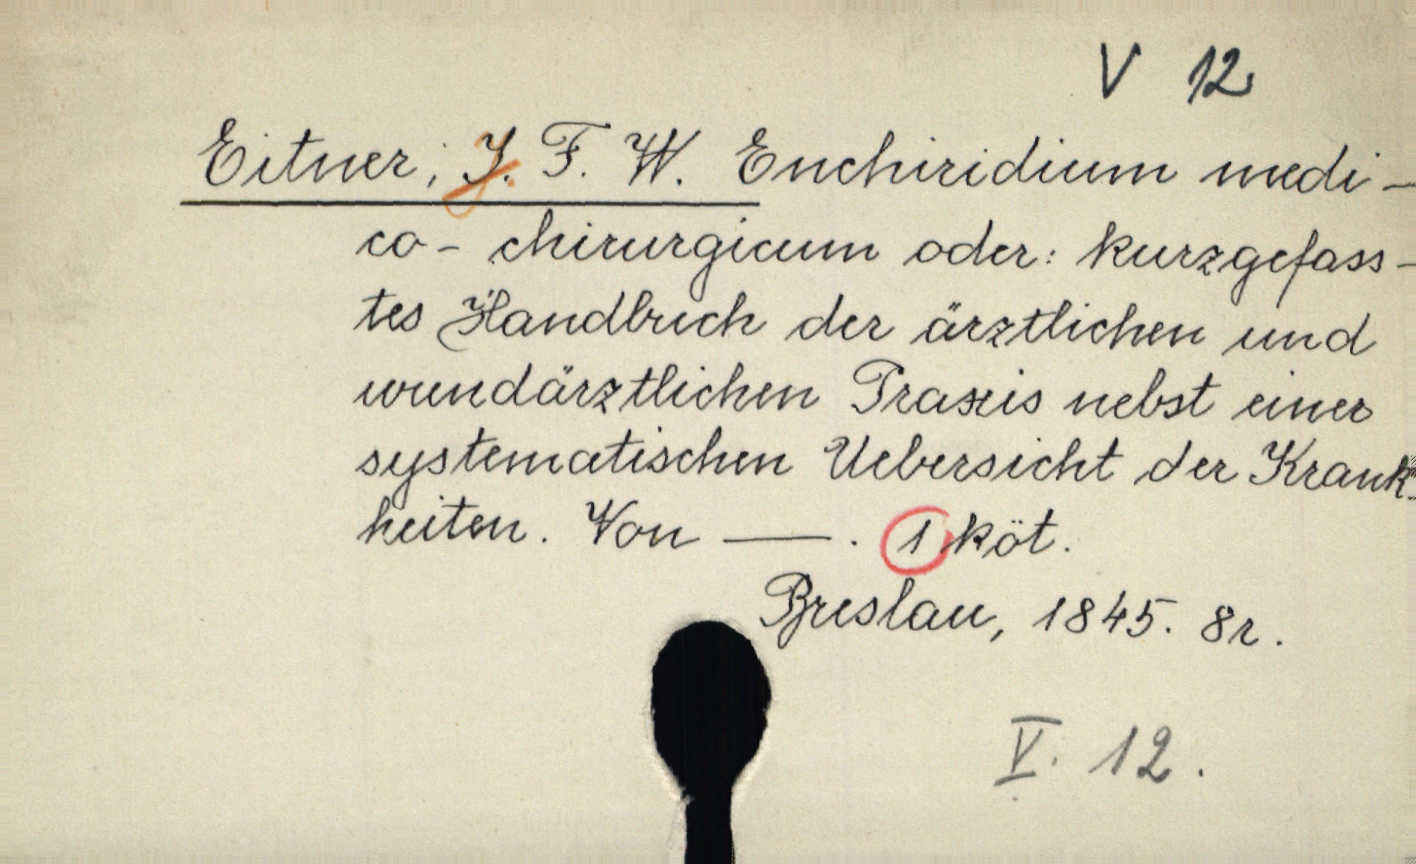 V 12
Eitner, J. F. W. Enchiridium medi-
co-chirurgicum oder: kurzgefass-
tes Handbuch der ärztlichen und
wundärztlichen Praxis nebst einer
systematischen Uebersicht der Krank-
heiten. Von —. 1 köt.
Breslau, 1845. 8r.
V. 12.